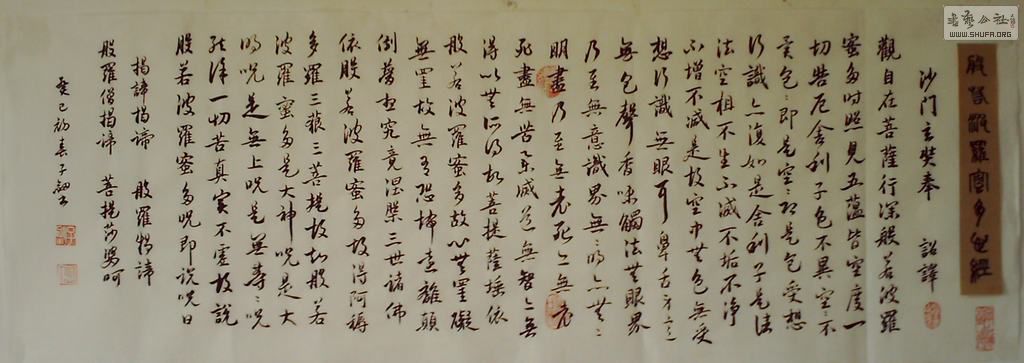 般若波羅蜜多心經
沙门玄奘奉 詔譯
觀自在菩薩行深般若波羅
蜜多时照見五蕴皆空度一
切苦厄舍利子色不異空空不
異色色即是空空即是色受想
行識亦復如是舍利子是诸
法空相不生不滅不垢不净
不增不滅是故空中无色無受
想行識無眼耳鼻舌身意
無色聲香味觸法无眼界
乃至無意識界無無明亦无無
明盡乃至無老死亦無老
死盡無苦集滅道無智亦無
得以无所得故菩提薩埵依
般若波羅蜜多故心无罣礙
無罣故無有恐怖遠離顛
倒夢想究竟涅槃三世诸佛
依般若波羅蜜多故得阿耨
多羅三藐三菩提故知般若
波羅蜜多是大神咒是大
明咒是無上咒是無等等咒
能除一切苦真实不虛故說
般若波羅蜜多咒即說咒曰
揭諦揭諦 般羅揭諦
般羅僧揭諦 菩提莎婆呵
癸巳初春子
书艺公社
WWW.SHUFA.ORG